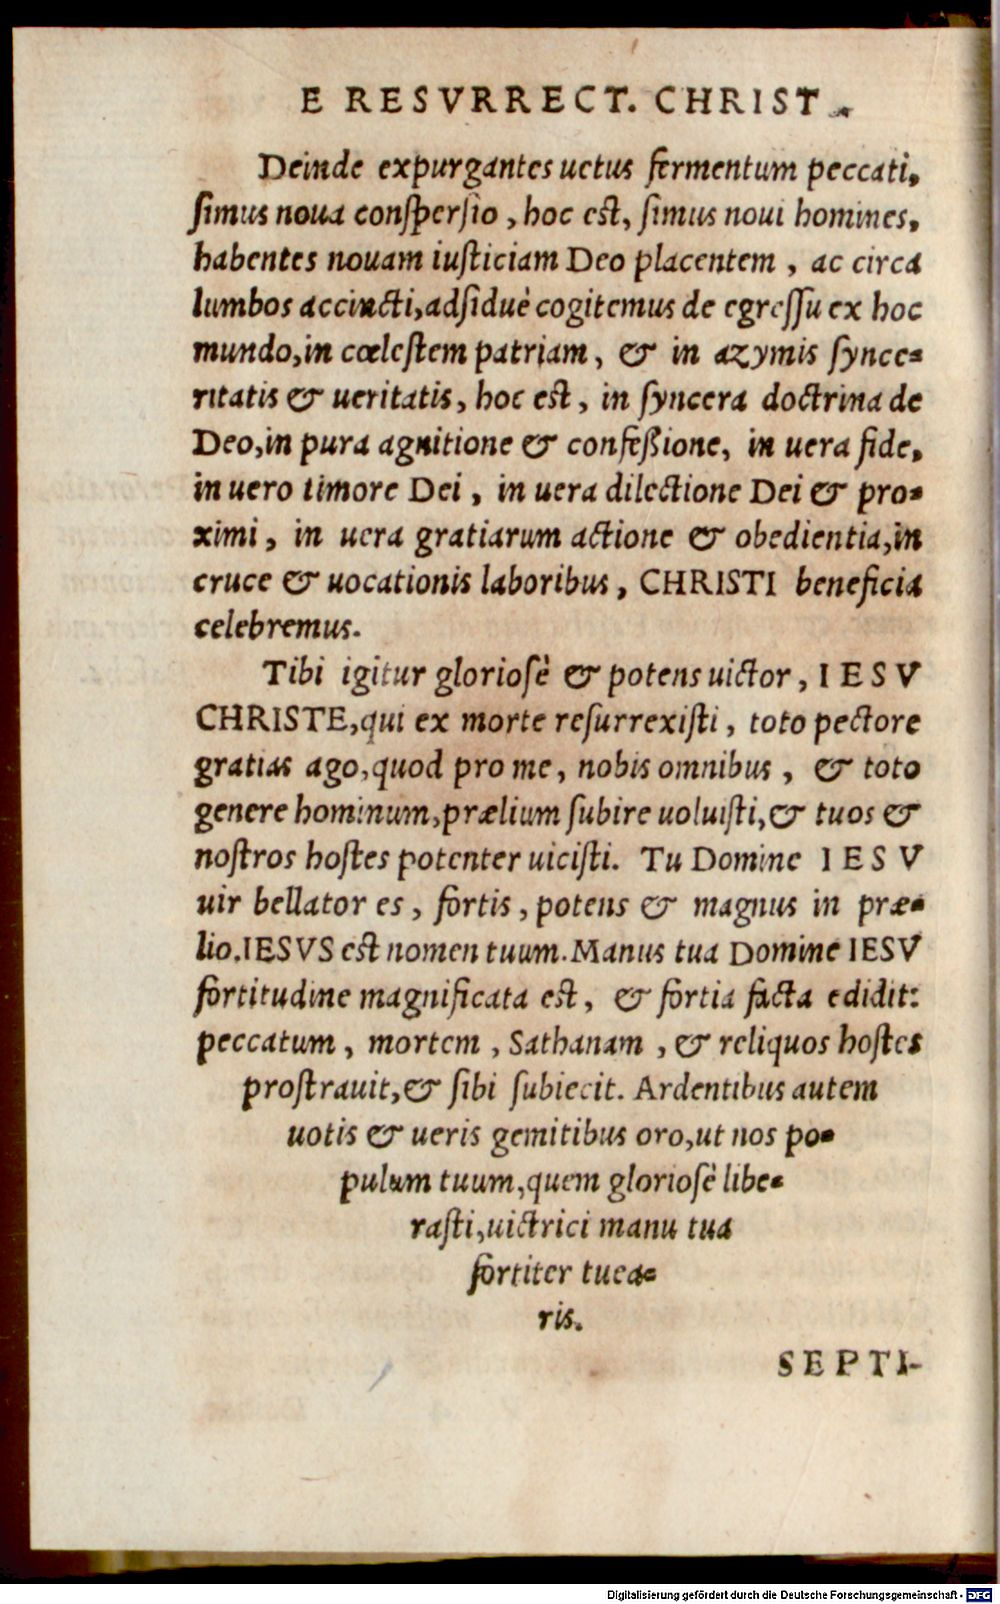 E RESVRRECT. CHRIST
Deinde expurgantes uetus fermentum peccati,
ſimus noua conſperſio, hoc est, ſimus noui homines,
habentes nouam iuſticiam Deo placentem, ac circa
lumbos accincti, adſiduè cogitemus de egreſſu ex hoc
mundo, in cœleſtem patriam, & in azymis ſynce-
ritatis & ueritatis, hoc est, in ſyncera doctrina de
Deo, in pura agnitione & confeßione, in uera fide,
in uero timore Dei, in uera dilectione Dei & pro-
ximi, in uera gratiarum actione & obedientia, in
cruce & uocationis laboribus, CHRISTI beneficia
celebremus.
Tibi igitur glorioſè & potens uictor, IESV
CHRISTE, qui ex morte reſurrexiſti, toto pectore
gratias ago, quod pro me, nobis omnibus, & toto
genere hominum, prælium ſubire uoluiſti, & tuos &
noſtros hoſtes potenter uiciſti. Tu Domine IESV
uir bellator es, fortis, potens & magnus in præ-
lio. IESVS est nomen tuum. Manus tua Domine IESV
fortitudine magnificata est, & fortia facta edidit:
peccatum, mortem, Sathanam, & reliquos hoſtes
proſtrauit, & ſibi ſubiecit. Ardentibus autem
uotis & ueris gemitibus oro, ut nos po-
pulum tuum, quem glorioſè libe-
raſti, uictrici manu tua
fortiter tuea-
ris.
SEPTI-
Digitalisierung gefördert durch die Deutsche Forschungsgemeinschaft - DFG